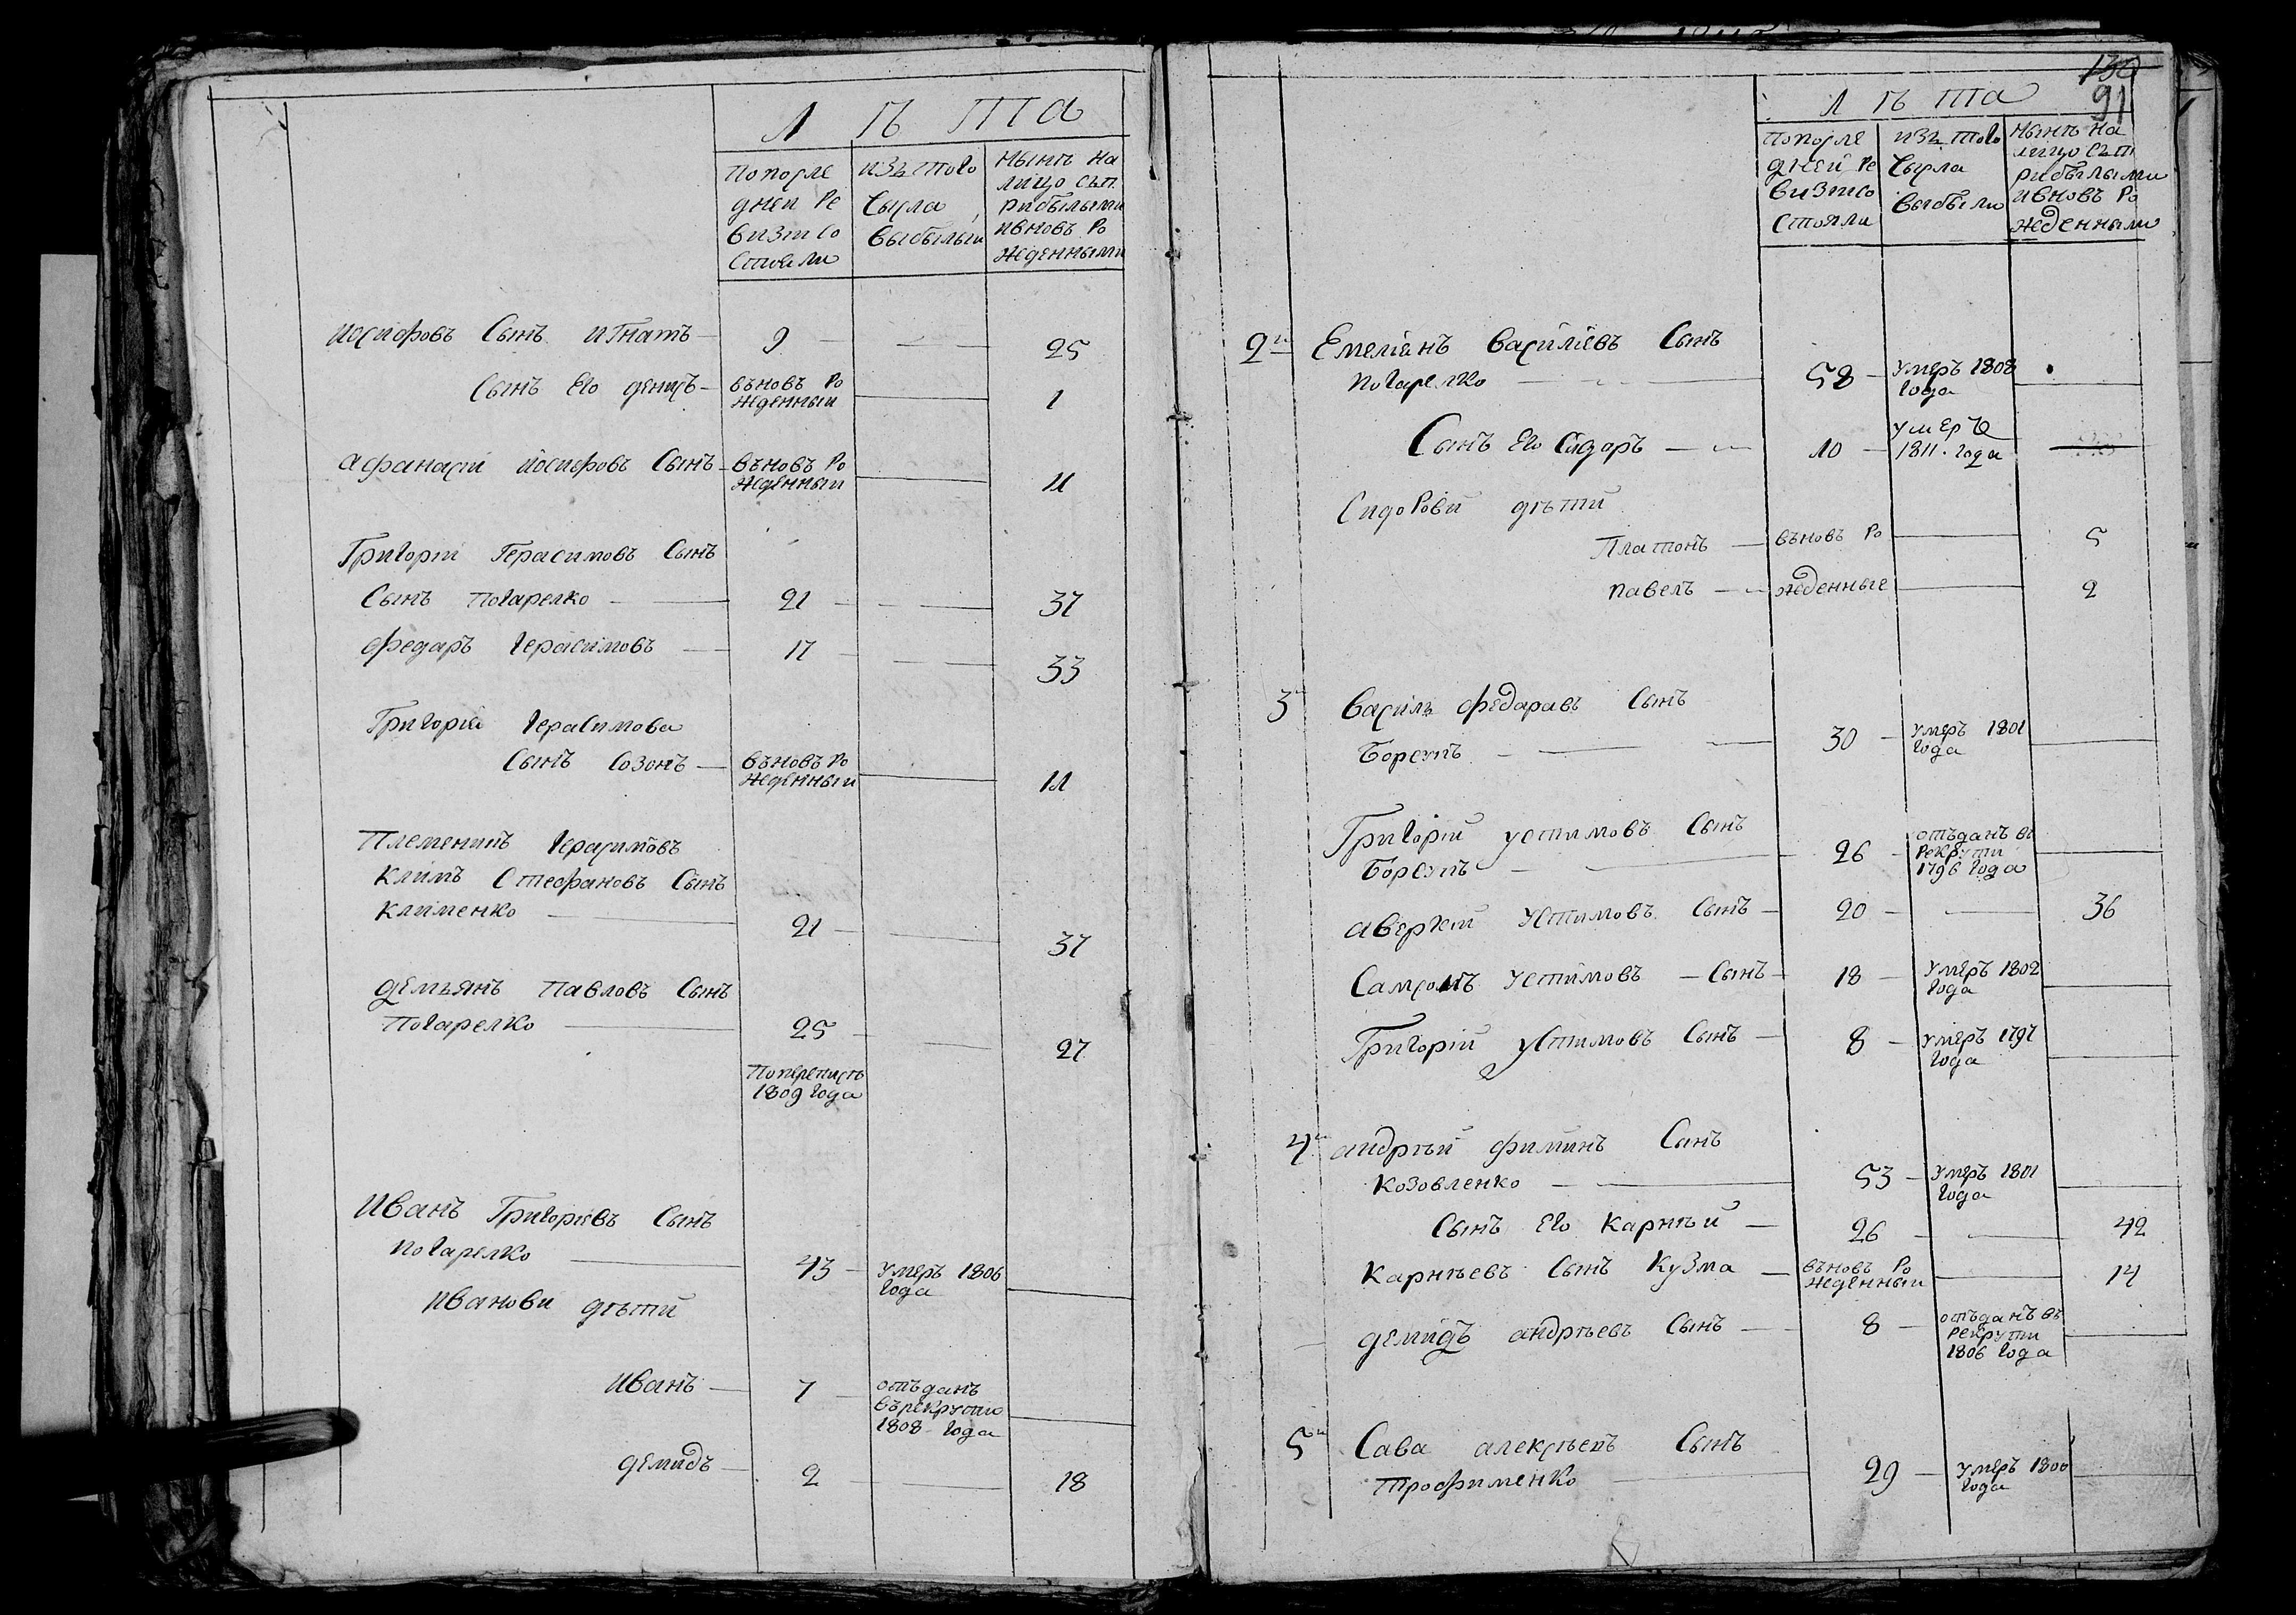 Л ѣ та
По послѣ
дней ре
визіи со
стояли
изъ того
числа
выбылыи
Нынѣ на
лицо съ п
рибылыми
и вновь ро
жденными
иосифовъ Сынъ игнатъ 9 25
Сынъ Его денисъ въновь Ро
жденныи 1
афанасіи иосифовъ Сынъ въновь Ро
жденныи 11
Григоріи Герасимовъ Сынъ
Сынъ Погарелко 21 37
Федаръ Герасимовъ 17 33
Григорія Герасимова
Сынъ Созонъ въновь Ро
жденныи 11
Племеникъ Герасимовъ
Климъ Стефановъ Сынъ
Клименко 21 37
Демьянъ Павловъ Сынъ
Погарелко 25 27
По переписѣ
1809 года
Иванъ Григоріевъ Сынъ
Погарелко 43 умеръ 1806
года
Иванови дѣти
Иванъ 7 отъданъ
въ рекрути
1808 года
Демидъ 2 18
130
91
Л ѣ та
По послѣ
дней ре
визіи со
стояли
изъ того
числа
выбыли
Нынѣ на
лицо съ п
рибылыми
и вновь ро
жденными
2й Емеліянъ Василіевъ Сынъ
Погарелко 58 умеръ 1808
года
Сынъ Его Сидаръ 10 умеръ
1811. года
Сидорови дѣти
Платонъ въновь Ро 5
Павелъ жденные 2
3й Василь Федаравъ Сынъ
Борсукъ 30 умеръ 1801
года
Григорій Устимовъ Сынъ
Борсукъ 26 отъданъ въ
рекрути
1796 года
Аверкій Устимовъ Сынъ 20 36
Самсонъ Устимовъ Сынъ 18 умеръ 1802
года
Григорій Устимовъ Сынъ 8 умеръ 1797
года
4й андрѣй Филипъ Сынъ
Козовленко 53 умеръ 1801
года
Сынъ Его Карнѣй 26 42
Карнѣевъ Сынъ Кузма въновь Ро
жденныи 14
Демидъ андрѣевъ Сынъ 8 отъданъ въ
рекрути
1806 года
5й Сава алексѣевъ Сынъ
Трофименко 29 умеръ 1800
года